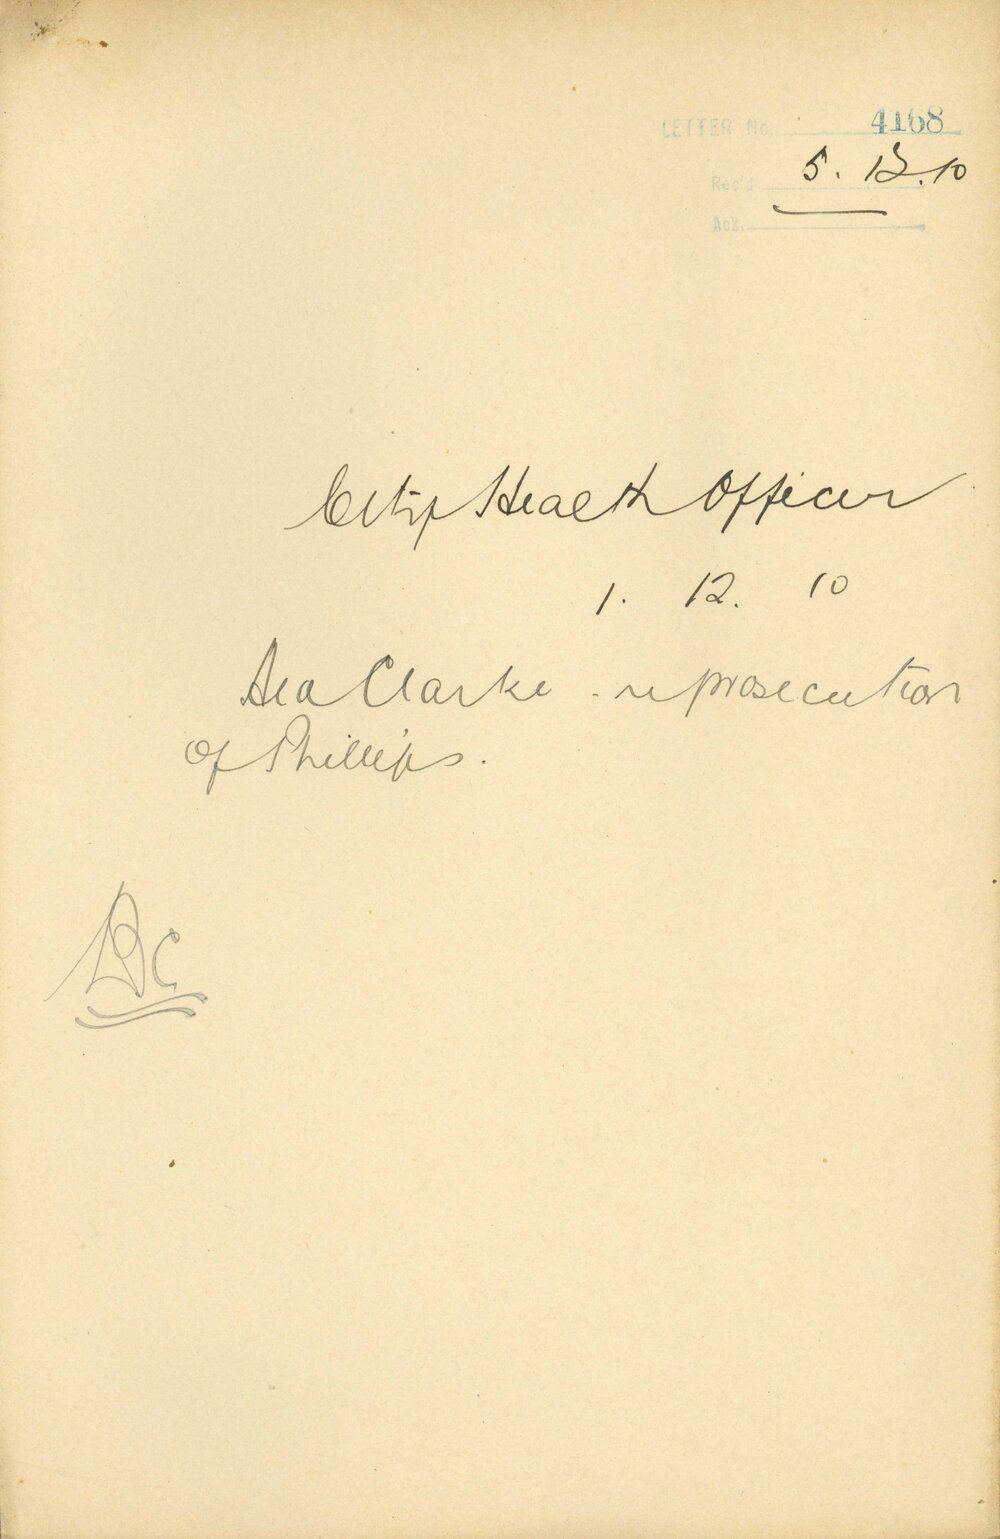 LETTER No. 4168
Rec'd 5. 12. 10
Ack.
City Health Officer
1. 12. 10
Clarke - re prosecution
of Phillips.